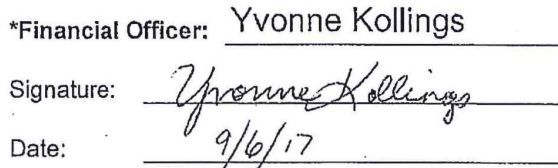 *Financial Officer: Yvonne Kollings
Signature: Yvonne Kollings
Date: 9/6/17